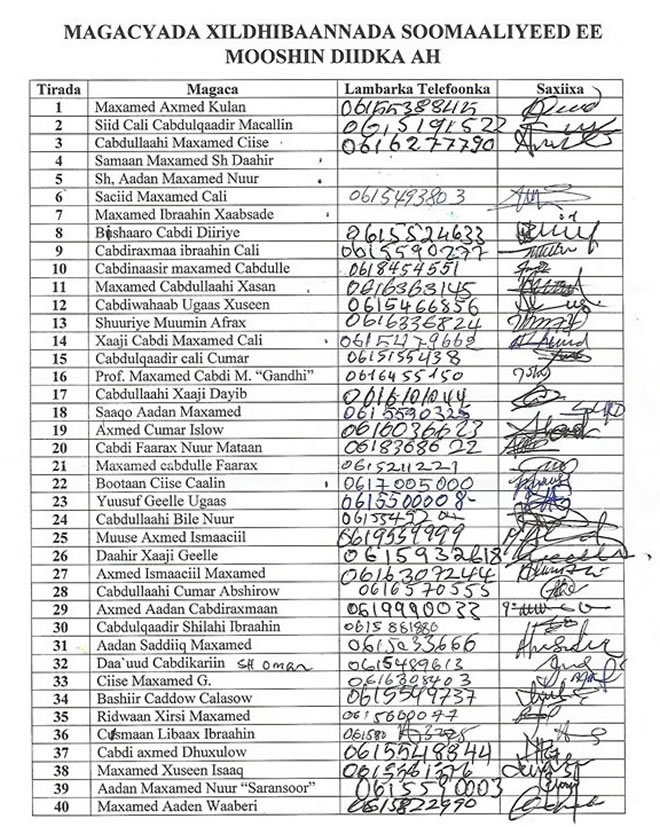 MAGACYADA XILDHIBAANNADA SOOMAALIYEED EE
MOOSHIN DIIDKA AH
Tirada Magaca Lambarka Telefoonka Saxiixa
1 Maxamed Axmed Kulan 0615538845
2 Siid Cali Cabdulqaadir Macallin 0615191522
3 Cabdullaahi Maxamed Ciise 0616277790
4 Samaan Maxamed Sh Daahir
5 Sh, Aadan Maxamed Nuur
6 Saciid Maxamed Cali 0615493803
7 Maxamed Ibraahin Xaabsade
8 Bishaaro Cabdi Diiriye 0615524633
9 Cabdiraxmaa ibraahin Cali 0615590277
10 Cabdinaasir maxamed Cabdulle 0618454551
11 Maxamed Cabdullaahi Xasan 0616363145
12 Cabdiwahaab Ugaas Xuseen 0615466856
13 Shuuriye Muumin Afrax 0616336824
14 Xaaji Cabdi Maxamed Cali 0615479662
15 Cabdulqaadir cali Cumar 0615155438
16 Prof. Maxamed Cabdi M. “Gandhi” 0616455150
17 Cabdullaahi Xaaji Dayib
18 Saaqo Aadan Maxamed 0615590325
19 Axmed Cumar Islow 0616036623
20 Cabdi Faarax Nuur Mataan 0618368622
21 Maxamed cabdulle Faarax 0615211221
22 Bootaan Ciise Caalin 0617005000
23 Yuusuf Geelle Ugaas 0615500008
24 Cabdullaahi Bile Nuur
25 Muuse Axmed Ismaaciil 0619559999
26 Daahir Xaaji Geelle 0615932618
27 Axmed Ismaaciil Maxamed 0616307244
28 Cabdullaahi Cumar Abshirow 0616570555
29 Axmed Aadan Cabdiraxmaan 0619990033
30 Cabdulqaadir Shilahi Ibraahin
31 Aadan Saddiiq Maxamed 0615033666
32 Daa`uud Cabdikariin SH Omar 0615489613
33 Ciise Maxamed G. 0616308403
34 Bashiir Caddow Calasow 0615549737
35 Ridwaan Xirsi Maxamed
36 Cusmaan Libaax Ibraahin
37 Cabdi axmed Dhuxulow 0615548844
38 Maxamed Xuseen Isaaq 0615561576
39 Aadan Maxamed Nuur “Saransoor” 0615510003
40 Maxamed Aaden Waaberi 0615822990